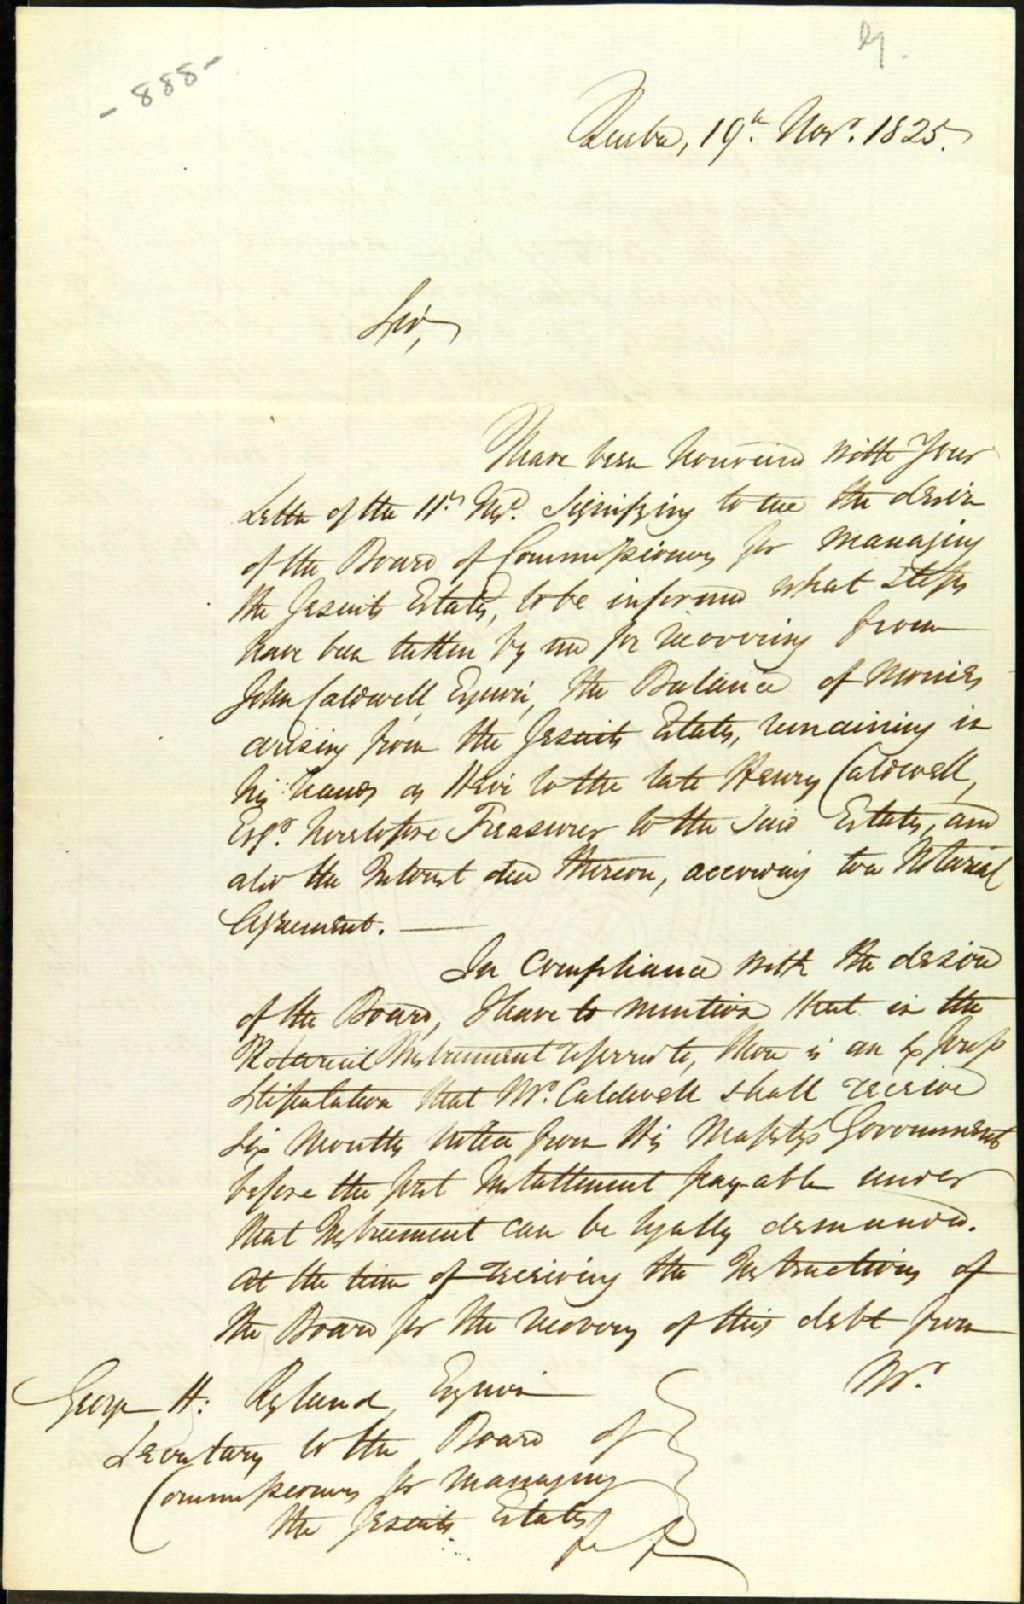 - 888 -
Quebec, 19th. Novr. 1825.
Sir,
I have been honoured with Your
Letter of the 11th Inst. Signifying to me the desire
of the Board of Commissioners for managing
the Jesuits Estates, to be informed what Steps
have been taken by me for recovering from
John Caldwell, Esquire, the Balance of Monies
arising from the Jesuits Estates, remaining in
his hands as Heir to the late Henry Caldwell,
Esqr. heretofore Treasurer to the Said Estates, and
also the Interest due thereon, according to a Notarial
Agreement. —
In compliance with the desire
of the Board, I have to mention that in the
Notarial Instrument referred to, there is an Express
Stipulation that Mr. Caldwell shall receive
Six Months notice from His Majesty's Government
before the first Instalment payable under
that Instrument can be legally demanded.
At the time of receiving the Instructions of
the Board for the recovery of this debt from
Mr.
George H: Ryland, Esquire
Secretary to the Board of
Commissioners for Managing
the Jesuits Estates